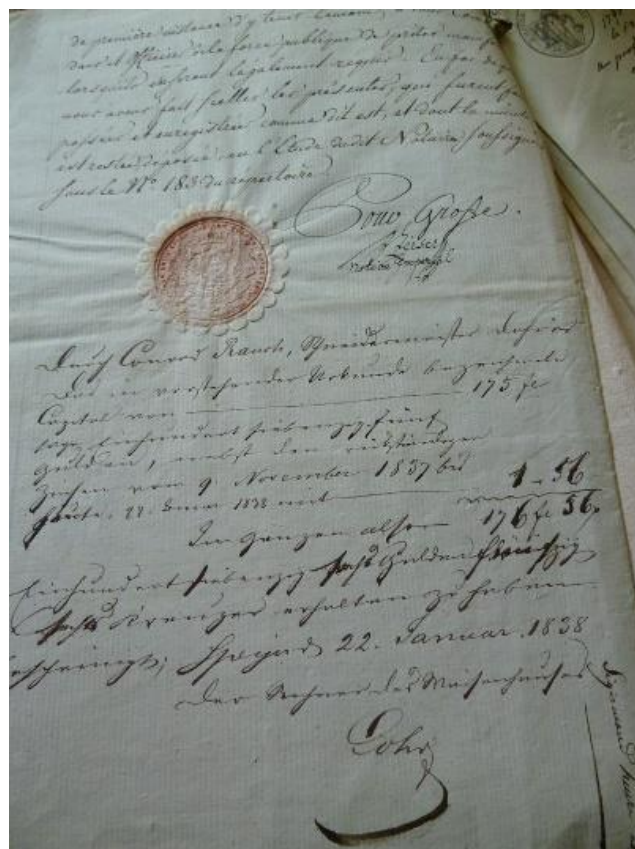 de première instance d'y tenir la main, à tous Com
dans et Officiers de la force publique de prêter main
lorsqu'ils en seront légalement requis. En foi de
nous avons fait sceller les présentes, qui furent
passées et enregistrées comme dit est, et dont la minute
est restée déposée en l'Etude dudit Notaire soussigné
sous le N° 183 du repertoire
Pour Grosse.
notaire impérial
Durch Conrad Rauch, Schneidermeister dahier
das in vorstehender Urkunde bezeichnete
Capital von 175 fl
sage Einhundert siebenzig fünf
Gulden, nebst den rückständigen
Zinsen vom 9. November 1837 bis
heute, 22. Januar 1838 mit 1 - 56
Im ganzen also 176 fl 56
Einhundert siebenzig sechs Gulden fünfzig
sechs Kreuzer erhalten zu haben
bescheinigt; Speyer d 22. Januar 1838
Der Rechner des Waisenhauses
Lohr